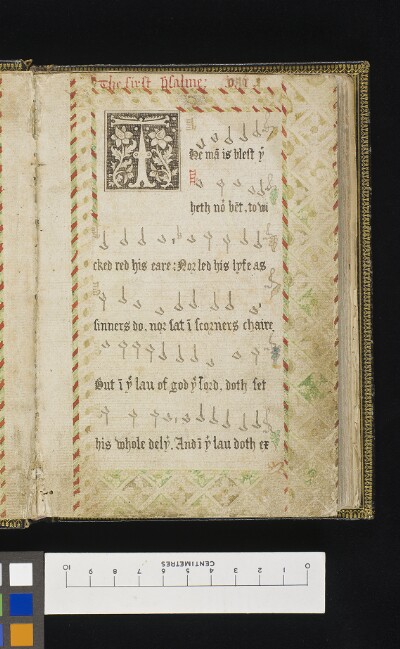 The first psalme:
The mã is blest yͭ
heth nō bēt. to wi
cked red his eare: Nor led his lyfe as
sinners do, nor sat ī scorners chaire
But ī yͤ lau of god yͤ lord, doth set
his whole dely. And ī yͤ lau doth ex
CENTIMETRES
10 9 8 7 6 5 4 3 2 1 0